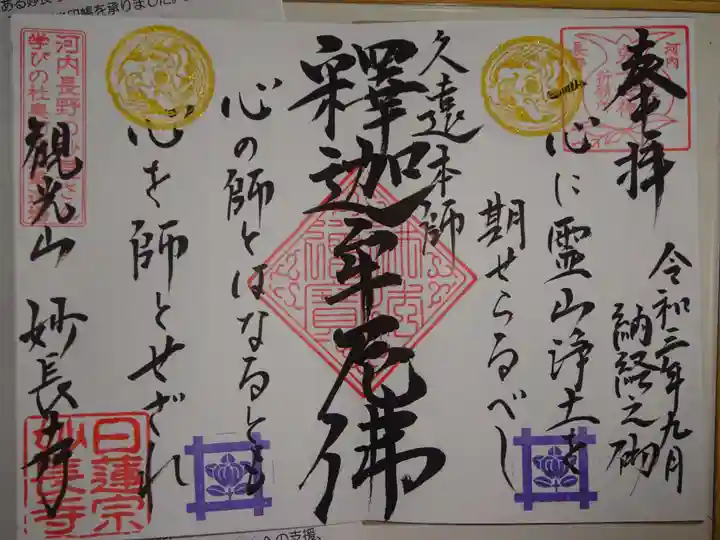 奉拝
令和三年九月
納経之砌
心に霊山浄土を
期せらるべし
久遠本師
釋迦牟尼佛
心の師とはなるとも
心を師とせざれ
観光山 妙長寺
河内長野の
学びの社
日蓮宗
妙長寺
河内
長野
帳を承りました。
の支援、